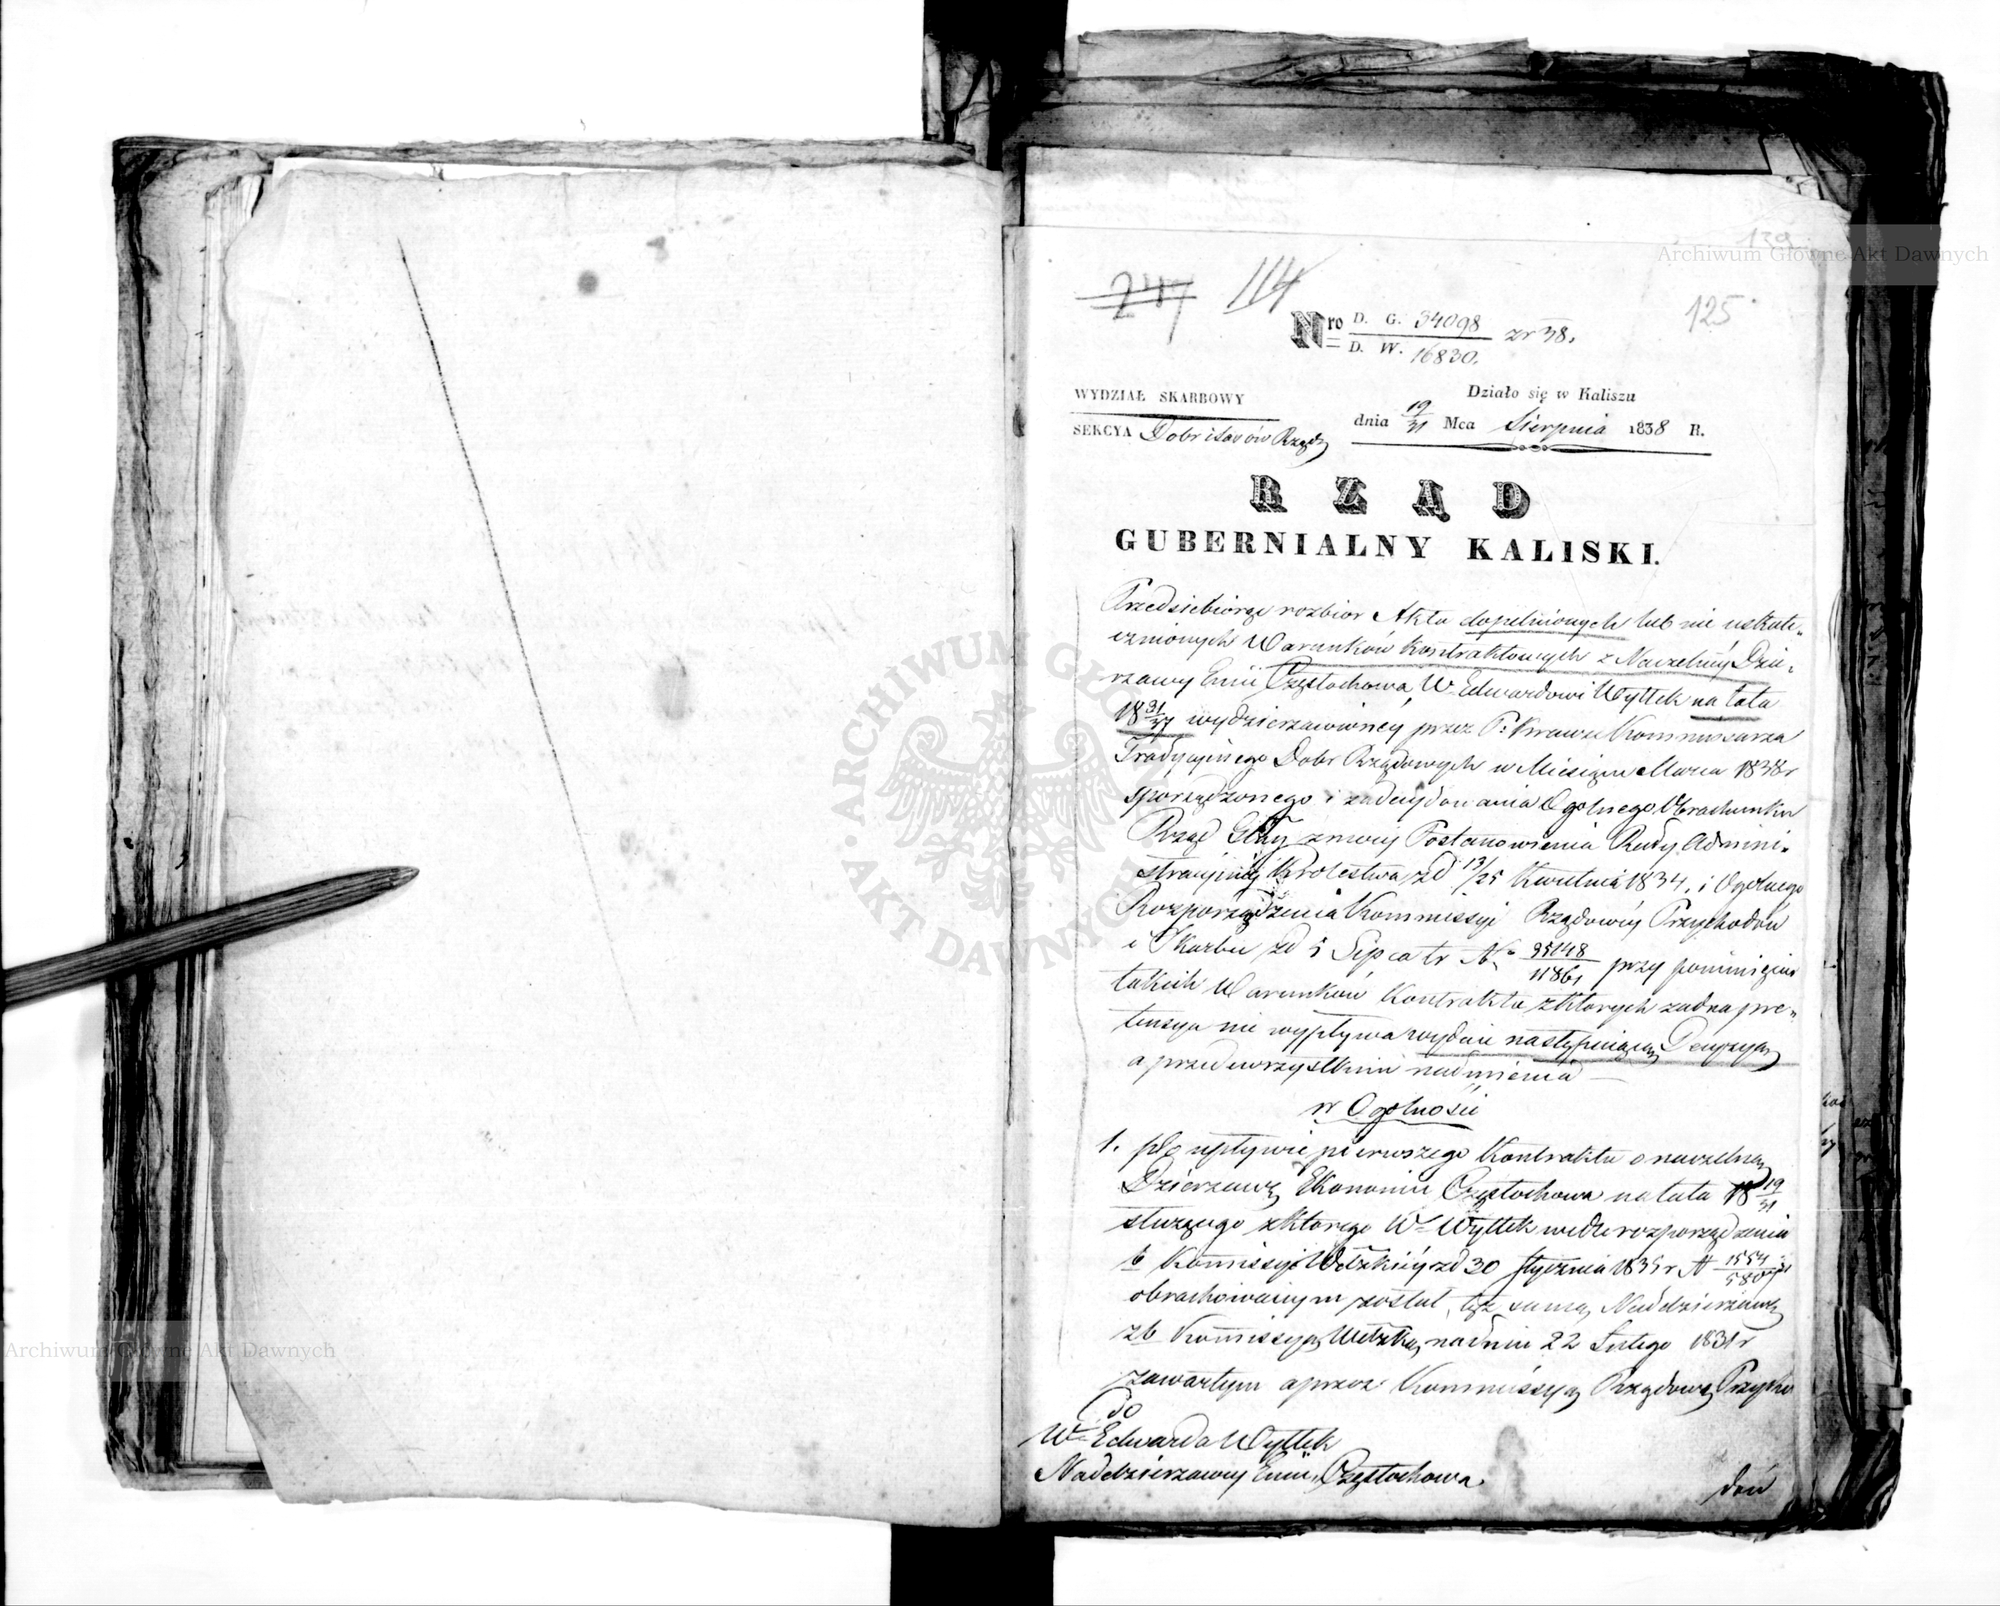 139
247 114
125
Nro D. G. 34098 zr 38.
D. W. 16830.
WYDZIAŁ SKARBOWY
SEKCYA Dobr i Lasów Rządz
Działo się w Kaliszu
dnia 19/31 Mca Sierpnia 1838 R.
RZĄD
GUBERNIALNY KALISKI.
Przedsiebiorąc rozbior Akta dopełnionych lub nie uskute-
cznionych Warunków Kontraktowych z Naczelney Dzie-
rzawy Enii Częstochowa, W. Edwardowi Wyttek na lata
18 31/37 wydzierzawioney przez P. Krauze Kommissarza
Tradycyinego Dobr Rządowych w Miesiącu Marcu 1838 r
sporządzonego i zadecydowania Ogolnego Obrachunku
Rząd Glny z mocy Postanowienia Rady Admini-
stracyiney Krolestwa zd 13/25 Kwietnia 1834. i Ogolnego
Rozporządzenia Kommissyi Rządowey Przychodów
i Skarbu zd 5 Lipca tr N. 35148/11861 przy pominięciu
takich Warunków Kontraktu z ktorych zadna pre-
tensya nie wypływa wydaie następuiącą Decyzyą
a przedewszystkim nadmienia —
w Ogolnosci
1. po upływie pierwszego Kontraktu o naczelną
Dzierzawę Ekonomii Częstochowa na lata 18 19/31
służącego z ktorego W. Wyttek wedle rozporządzenia
b Komissyi Wdzkiey zd 30 Stycznia 1835 r N 1554/5807
obrachowanym został, tęż samą Naddzierżawę
z b Komissyą Wdzką na dniu 22 Lutego 1831 r
zawartym a przez Kommissyą Rządową Przycho
Do
W. Edwarda Wyttek
Naddzierzawcy Enii Częstochowa
dów
ARCHIWUM GŁÓWNE AKT DAWNYCH
Archiwum Główne Akt Dawnych
Archiwum Główne Akt Dawnych